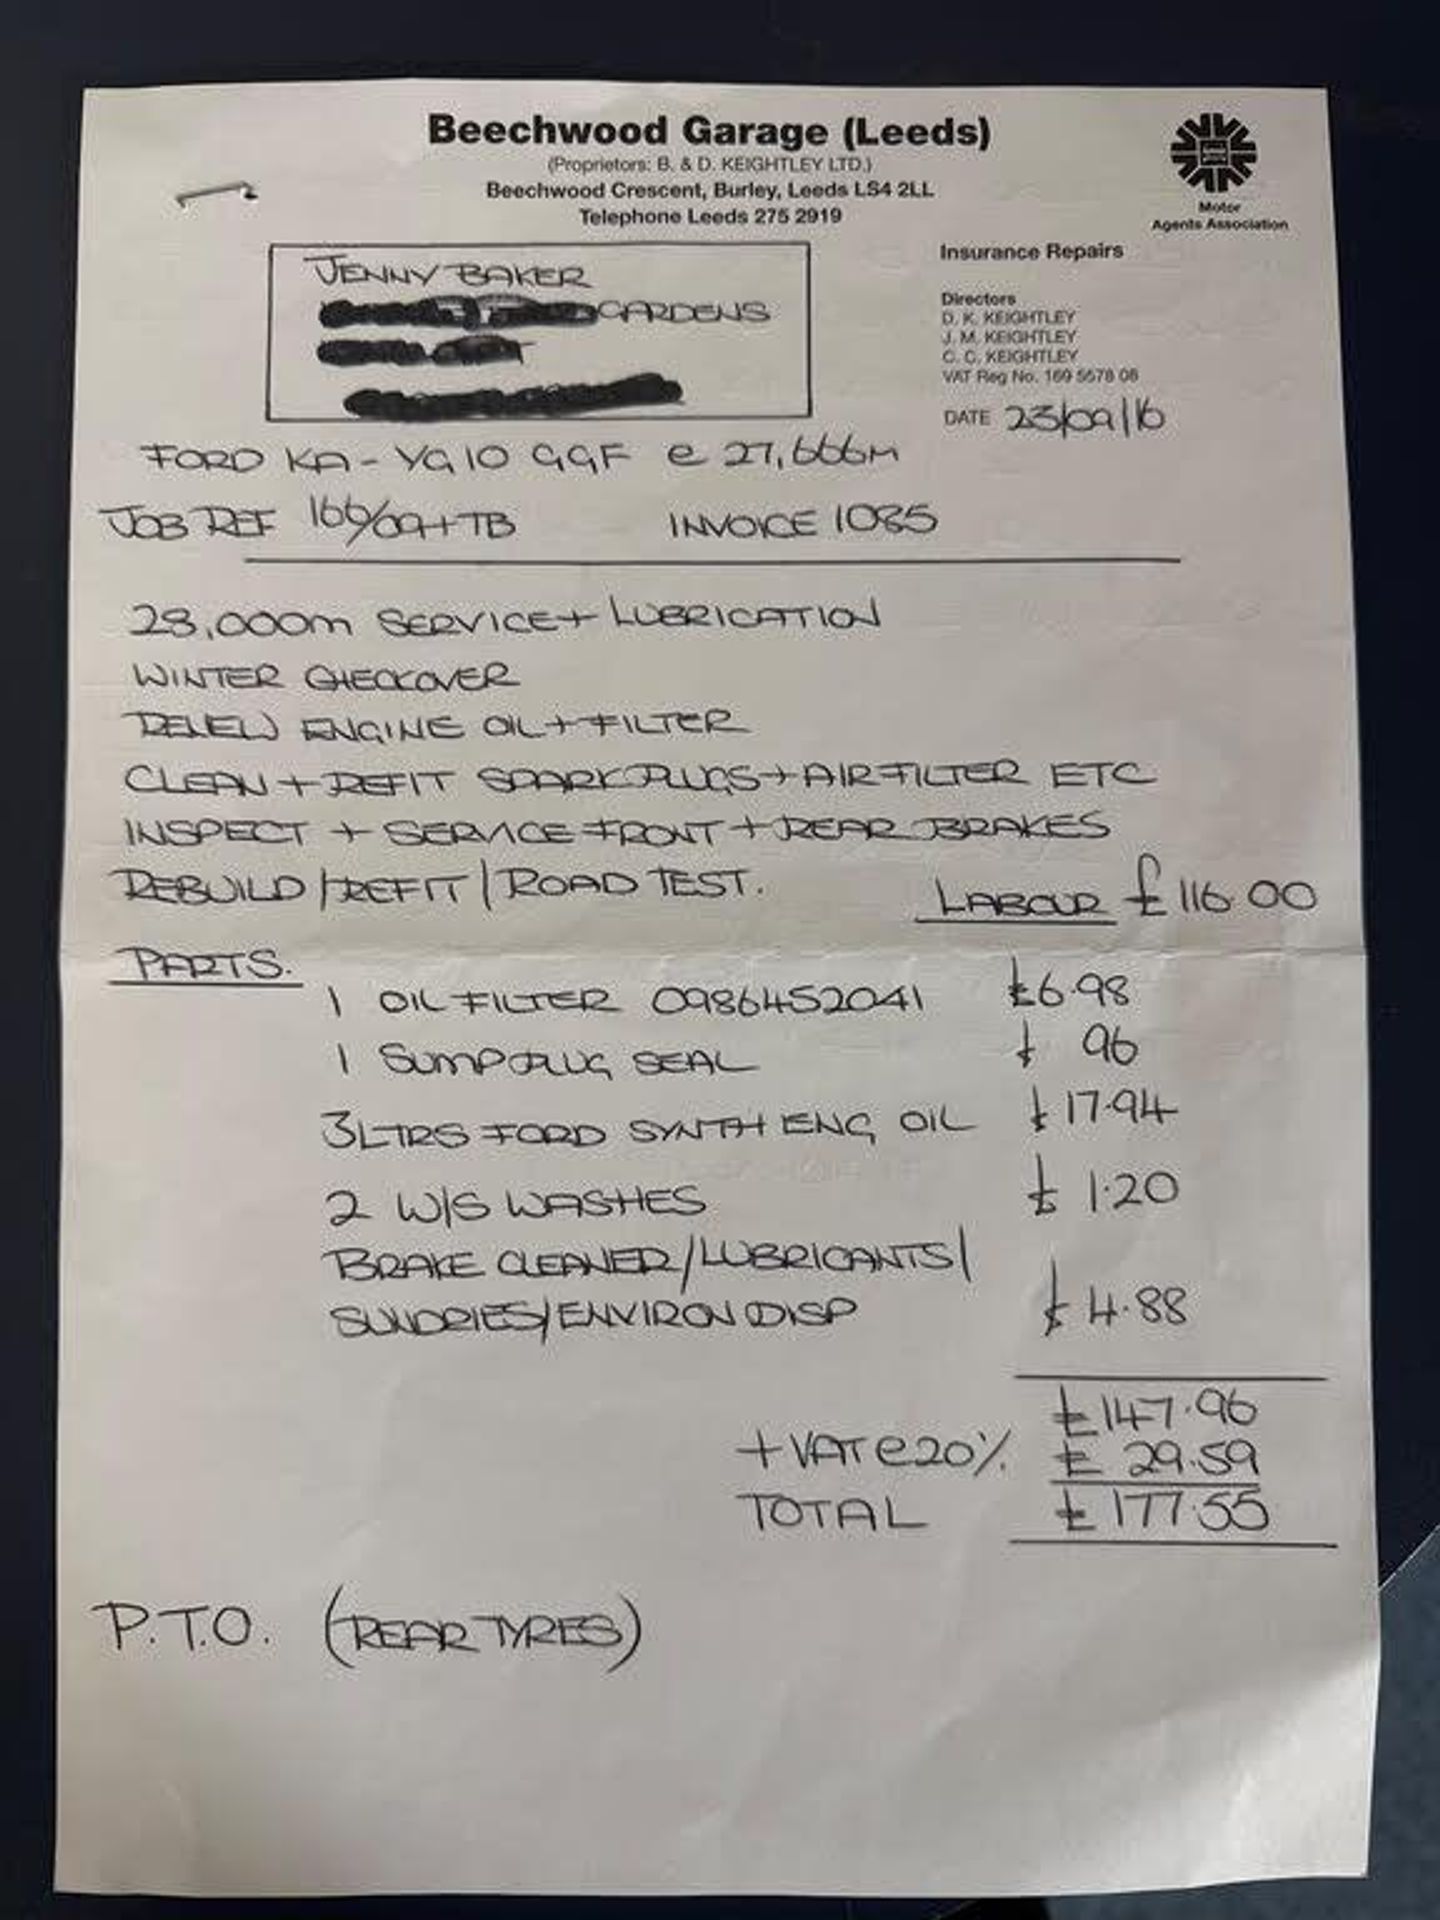 Beechwood Garage (Leeds)
(Proprietors: B. & D. KEIGHTLEY LTD.)
Beechwood Crescent, Burley, Leeds LS4 2LL
Telephone Leeds 275 2919
Motor
Agents Association
JENNY BAKER
GARDENS
Insurance Repairs
Directors
D. K. KEIGHTLEY
J. M. KEIGHTLEY
C. C. KEIGHTLEY
VAT Reg No. 169 5578 08
DATE 23/09/16
FORD KA - YG10 GGF @ 27,666M
JOB REF 166/09+TB INVOICE 1085
28,000m SERVICE + LUBRICATION
WINTER CHECKOVER
RENEW ENGINE OIL + FILTER
CLEAN + REFIT SPARK PLUGS + AIR FILTER ETC
INSPECT + SERVICE FRONT + REAR BRAKES
REBUILD / REFIT / ROAD TEST. LABOUR £116.00
PARTS.
1 OIL FILTER 0986452041 £6.98
1 SUMP PLUG SEAL £ 96
3LTRS FORD SYNTH ENG OIL £17.94
2 W/S WASHES £ 1.20
BRAKE CLEANER/LUBRICANTS/
SUNDRIES/ENVIRON DISP £4.88
£147.96
+ VAT @ 20% £ 29.59
TOTAL £177.55
P.T.O. (REAR TYRES)